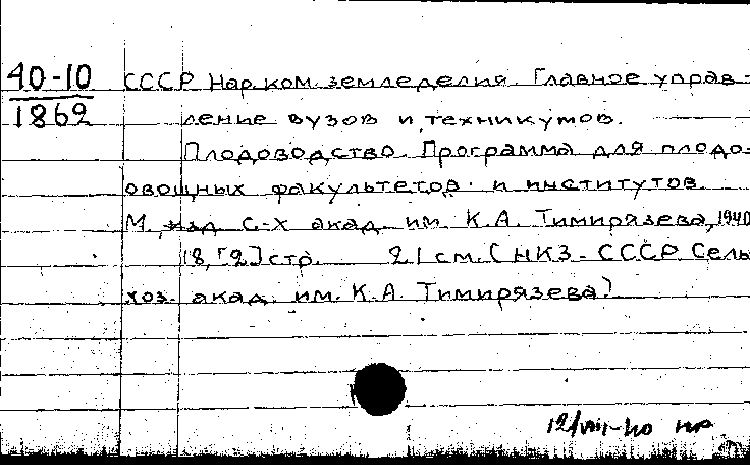 40-10
1862
СССР Нар.ком. земледелия. Главное управ-
ление вузов и техникумов.
Плодоводство. Программа для плодо-
овощных факультетов и институтов.
М, изд. С.-х акад. им. К.А. Тимирязева, 1940
18, [2] стр. 21 см. (НКЗ - СССР. Сель
хоз. акад. им. К.А. Тимирязева)
12/VIII-40